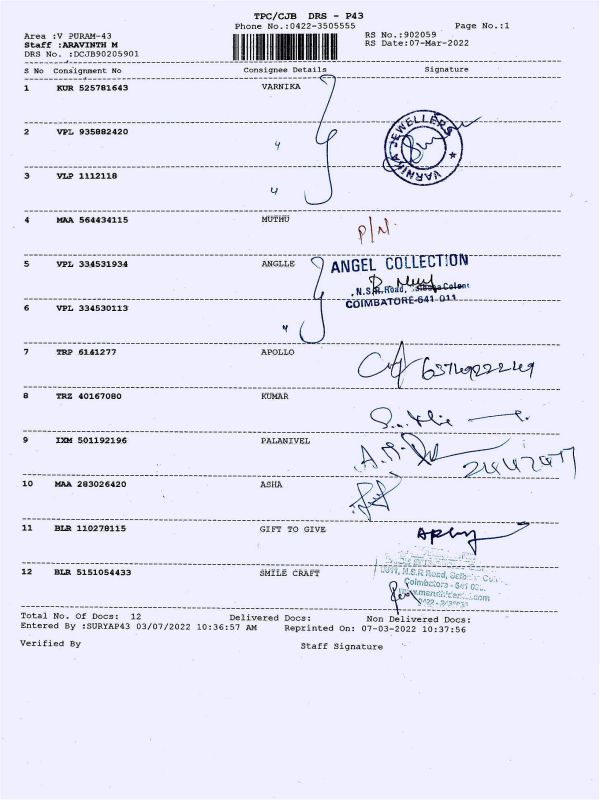 TPC/CJB DRS - P43
Phone No.:0422-3505555 Page No.:1
Area :V PURAM-43 RS No.:902059
Staff :ARAVINTH M RS Date:07-Mar-2022
DRS No. :DCJB90205901
S No Consignment No Consignee Details Signature
1 KUR 525781643 VARNIKA
VARNIKA JEWELLERS
2 VPL 935882420 "
3 VLP 1112118 "
4 MAA 564434115 MUTHU P/N.
5 VPL 334531934 ANGLLE ANGEL COLLECTION
N.S.R.Road, Saibaba Colony
COIMBATORE-641 011
6 VPL 334530113 "
7 TRP 6141277 APOLLO
8 TRZ 40167080 KUMAR
9 IXM 501192196 PALANIVEL
10 MAA 283026420 ASHA
11 BLR 110278115 GIFT TO GIVE
12 BLR 5151054433 SMILE CRAFT
N.S.R Road,
Coimbatore
Total No. Of Docs: 12 Delivered Docs: Non Delivered Docs:
Entered By :SURYAP43 03/07/2022 10:36:57 AM Reprinted On: 07-03-2022 10:37:56
Verified By Staff Signature